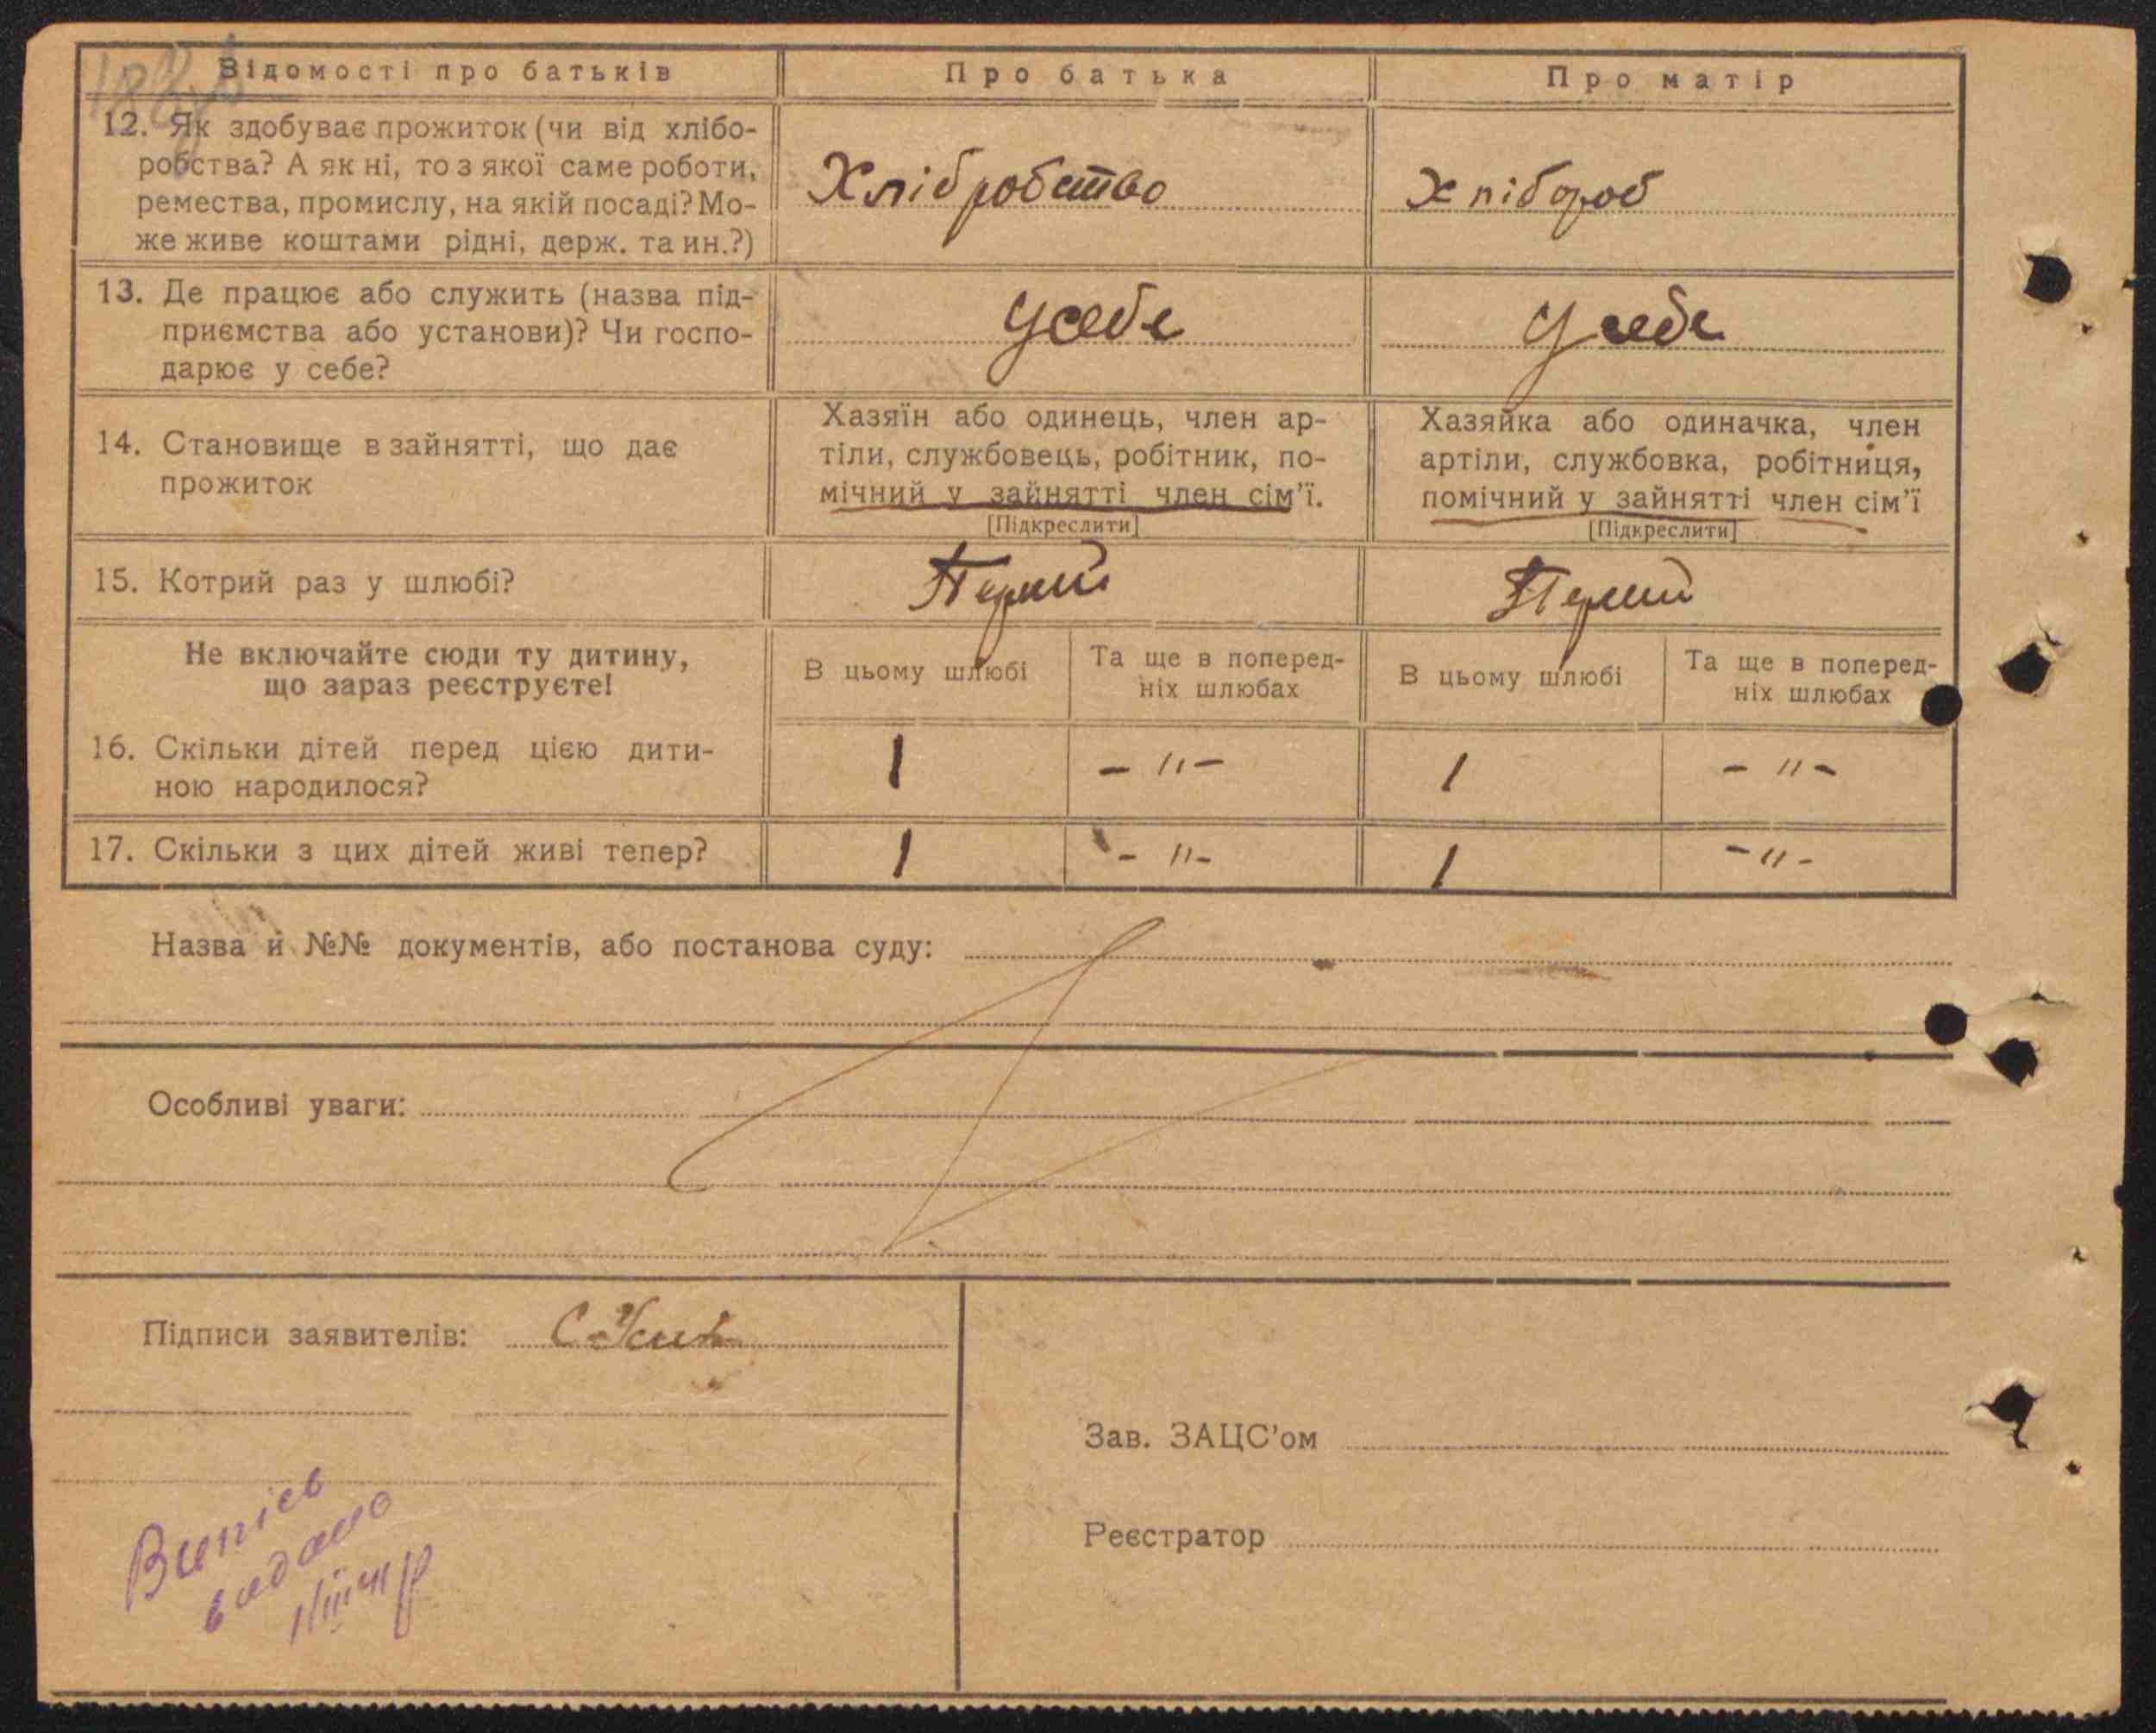 Відомості про батьків
Про батька
Про матір
12. Як здобуває прожиток (чи від хлібо-
робства? А як ні, то з якої саме роботи,
ремества, промислу, на якій посаді? Мо-
же живе коштами рідні, держ. та ин.?)
Хлібробство
Хлібороб
13. Де працює або служить (назва під-
приємства або установи)? Чи госпо-
дарює у себе?
У себе
У себе
14. Становище в зайнятті, що дає
прожиток
Хазяїн або одинець, член ар-
тіли, службовець, робітник, по-
мічний у зайнятті член сім'ї.
[Підкреслити]
Хазяйка або одиначка, член
артіли, службовка, робітниця,
помічний у зайнятті член сім'ї
[Підкреслити]
15. Котрий раз у шлюбі?
Не включайте сюди ту дитину,
що зараз реєструєте!
В цьому шлюбі
Та ще в поперед-
ніх шлюбах
В цьому шлюбі
Та ще в поперед-
ніх шлюбах
16. Скільки дітей перед цією дити-
ною народилося?
1
- " -
1
- " -
17. Скільки з цих дітей живі тепер?
1
- " -
1
- " -
Назва й №№ документів, або постанова суду:
Особливі уваги:
Підписи заявителів:
Зав. ЗАЦС'ом
Реєстратор
Випіс
видано
1/III 41 р